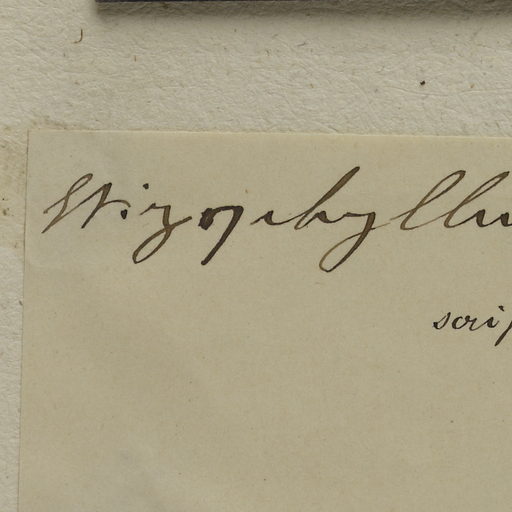 Stizophyllu
scrip